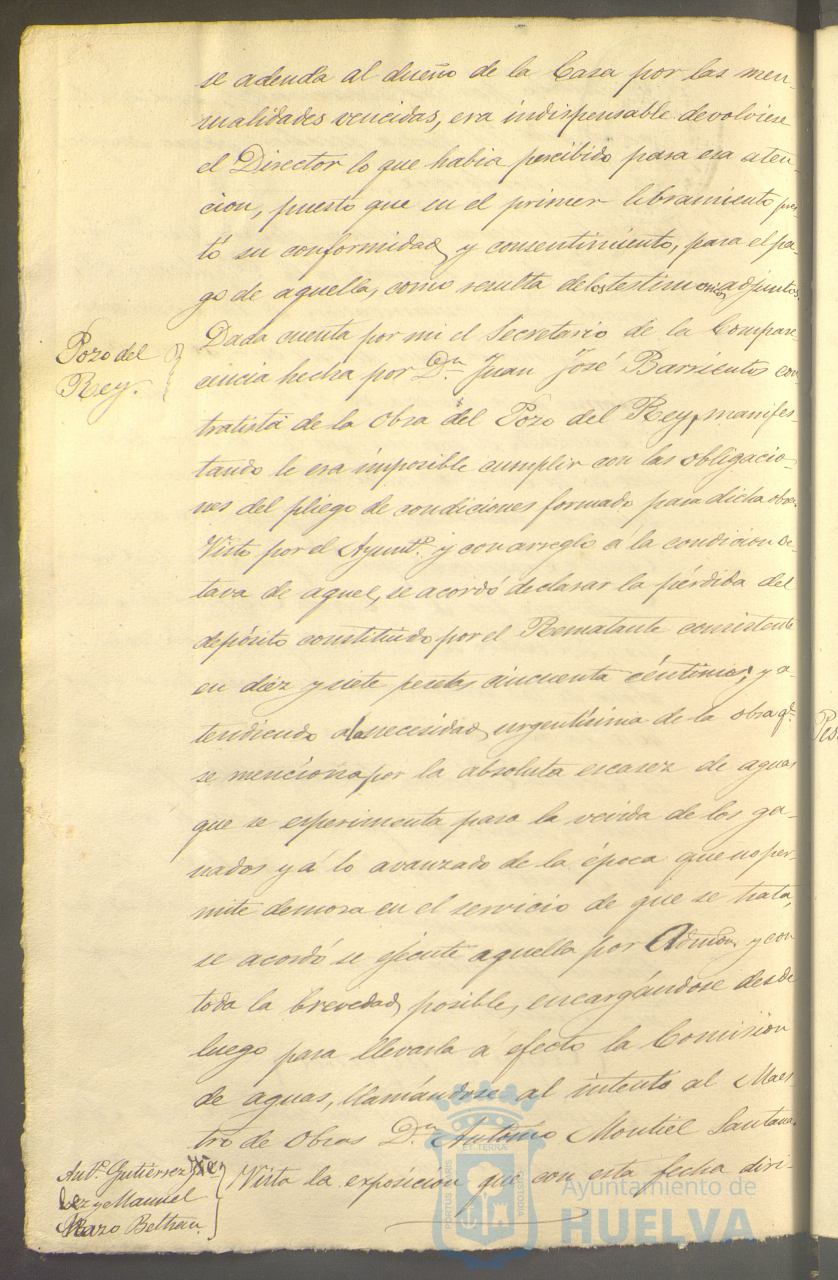 se adeuda al dueño de la Casa por las men-
sualidades vencidas, era indispensable devolviese
el Director lo que habia percibido para esa aten-
cion, puesto que en el primer libramiento pres-
tó su conformidad y consentimiento, para el pa-
go de aquella, como resulta de los testimonios adjuntos.
Pozo del
Rey.
Dada cuenta por mi el Secretario de la Compare-
cencia hecha por Dn Juan José Barrientos con
tratista de la obra del Pozo del Rey, manifes-
tando le era imposible cumplir con las obligacio-
nes del pliego de condiciones formado para dicha obra.
Visto por el Ayuntº. y con arreglo á la condicion oc-
tava de aquel, se acordó declarar la pérdida del
depósito constituido por el Rematante consistente
en diez y siete pesetas cincuenta céntimos; y a-
tendiendo a la necesidad urgentísima de la obra qe.
se menciona, por la absoluta escasez de aguas
que se esperimenta para la vevida de los ga-
nados y á lo avanzado de la época que no per-
mite demora en el servicio de que se trata,
se acordó se ejecute aquella por Admon. y con
toda la brevedad posible, encargándose desde
luego para llevarla á efecto la Comision
de aguas, llamándose al intento al Maes
tro de Obras Dn Antonio Montiel Santana.
Antº. Gutiérrez
y Manuel
Mazo Beltran
Vista la exposición que con esta fecha diri-
PORTUS MARIS ET TERRAE CUSTODIA
Ayuntamiento de
HUELVA